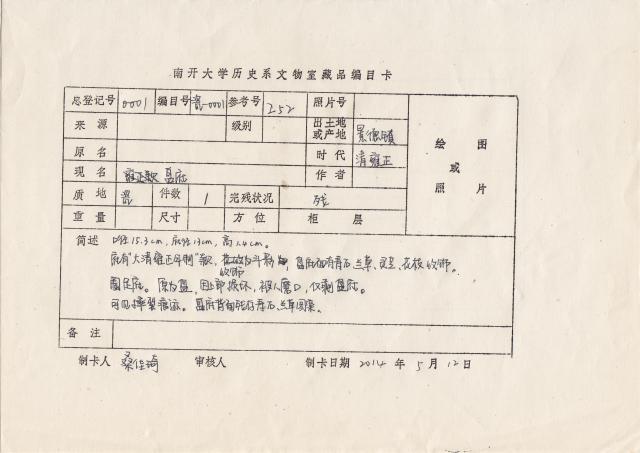 南开大学历史系文物室藏品编目卡
总登记号 0001 编目号 瓷-0001 参考号 252 照片号
来源 级别 出土地或产地 景德镇
绘图或照片
原名 时代 清雍正
现名 雍正款 盘底 作者
质地 瓷 件数 1 完残状况 残
重量 尺寸 方位 柜 层
简述 口径15.3cm,底径13cm,高1.4cm。
底有"大清雍正年制"款,
圈足底。原为盘,因上部损坏,被人磨口,仅剩盘底。
可见 痕迹。盘底背面 存青石、兰草图案。
备注
制卡人 桑佳琦 审核人 制卡日期 2014 年 5 月 12 日